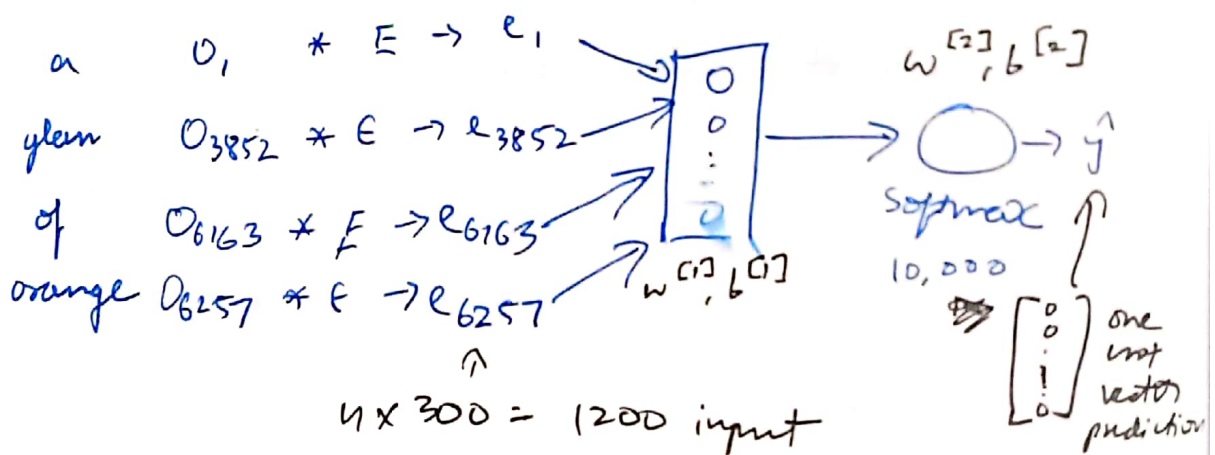 a O₁ * E → e₁
glass O₃₈₅₂ * E → e₃₈₅₂
of O₆₁₆₃ * E → e₆₁₆₃
orange O₆₂₅₇ * E → e₆₂₅₇
↑
4 x 300 = 1200 input
w^[1], b^[1]
w^[2], b^[2]
→ ŷ
Softmax
10,000
[0 0 : 1 0]
one
hot
vector
prediction